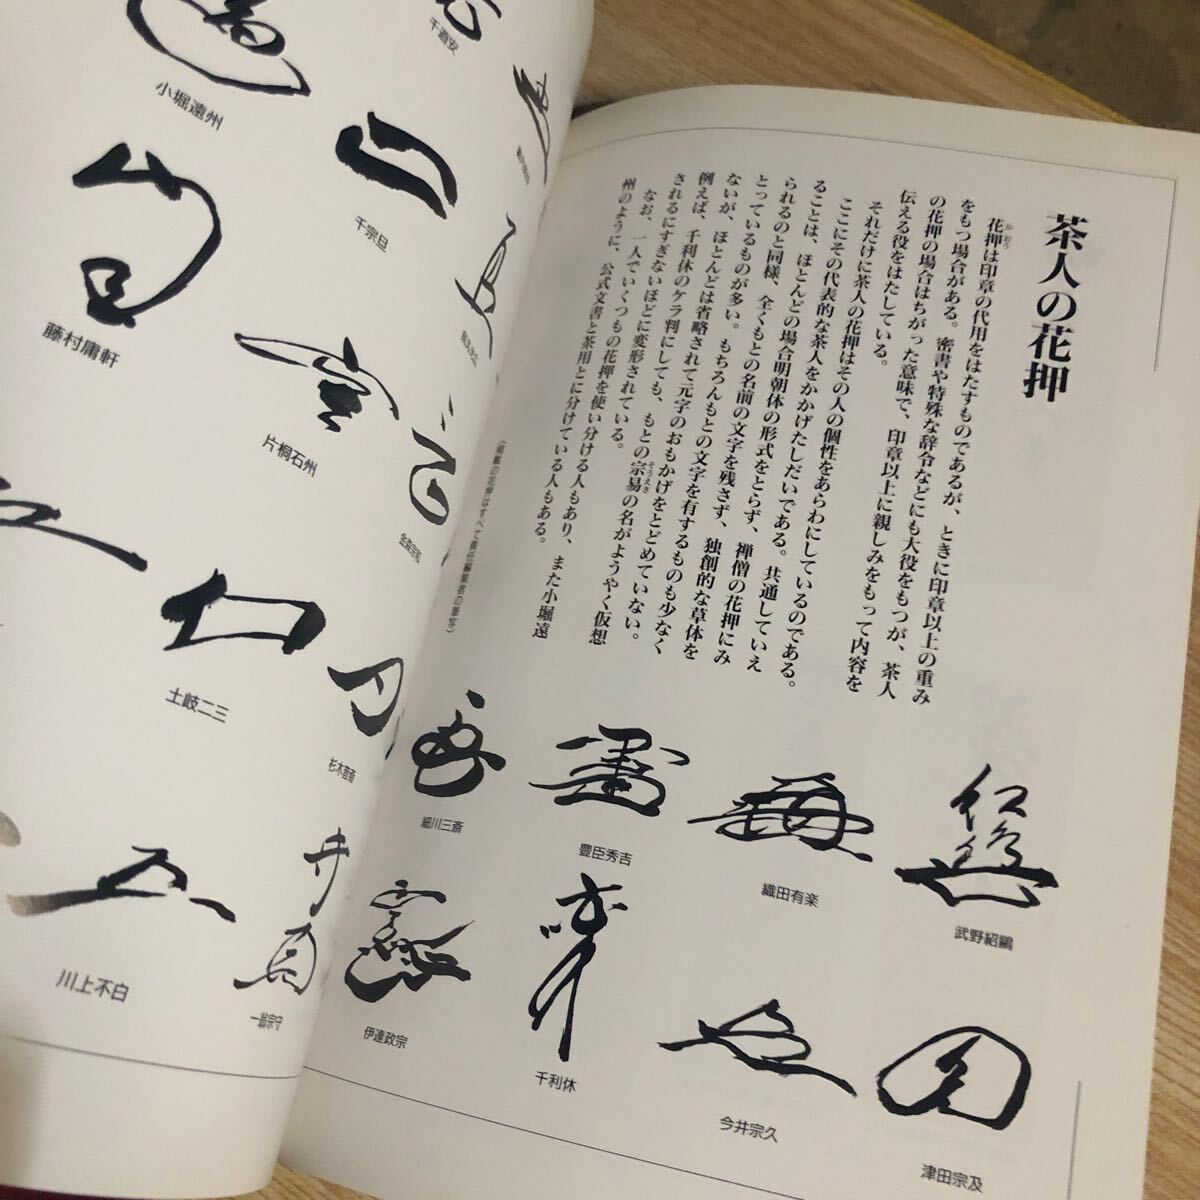 茶人の花押
花押は印章の代用をはたすものであるが、ときに印章以上の重み
かおう
をもつ場合がある。密書や特殊な辞令などにも大役をもつが、茶人
の花押の場合はちがった意味で、印章以上に親しみをもって内容を
伝える役をはたしている。
それだけに茶人の花押はその人の個性をあらわにしているのである。
ここにその代表的な茶人をかかげたしだいである。共通していえ
ることは、ほとんどの場合明朝体の形式をとらず、禅僧の花押にみ
られるのと同様、全くもとの名前の文字を残さず、独創的な草体を
とっているものが多い。もちろんもとの文字を有するものも少なく
ないが、ほとんどは省略されて元字のおもかげをとどめていない。
例えば、千利休のケラ判にしても、もとの宗易の名がようやく仮想
そうえき
されるにすぎないほどに変形されている。
なお、一人でいくつもの花押を使い分ける人もあり、また小堀遠
州のように、公式文書と茶用とに分けている人もある。
(掲載の花押はすべて責任編集者の筆写)
武野紹鷗
織田有楽
豊臣秀吉
細川三斎
津田宗及
今井宗久
千利休
伊達政宗
千道安
小堀遠州
千宗旦
藤村庸軒
片桐石州
金森宗和
土岐二三
杉木普斎
川上不白
一翁宗守